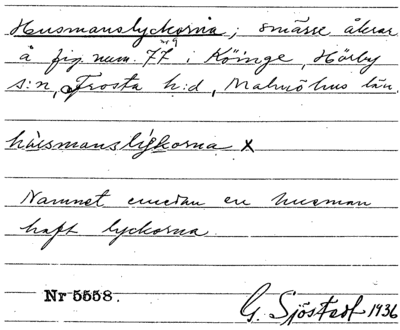 Husmanslyckorna; smärre åkrar
å fig. num. 77¹⁹ i Köinge, Hörby
s:n, Frosta h:d, Malmöhus län.
hùsmanslykorna x
Namnet emedan en husman
haft lyckorna
Nr 5558.
G. Sjöstedt 1936